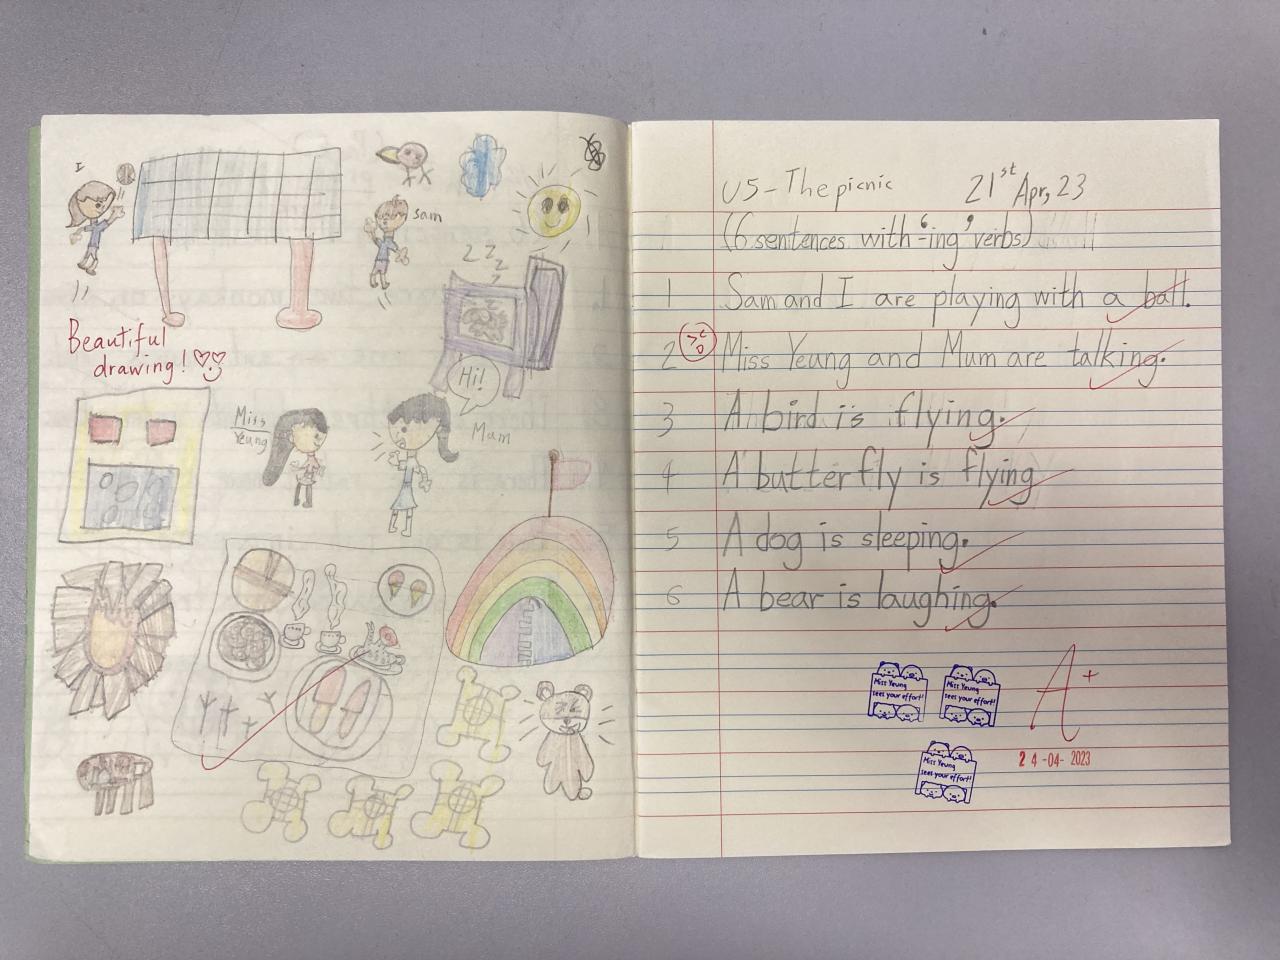 I
sam
z z z z
Beautiful
drawing!
Hi!
Miss
Yeung
Mum
U5 - The picnic 21st Apr, 23
(6 sentences with '-ing' verbs)
1 Sam and I are playing with a ball.
2 Miss Yeung and Mum are talking.
3 A bird is flying.
4 A butterfly is flying
5 A dog is sleeping.
6 A bear is laughing.
Miss Yeung
sees your effort!
Miss Yeung
sees your effort!
A+
Miss Yeung
sees your effort!
24-04-2023